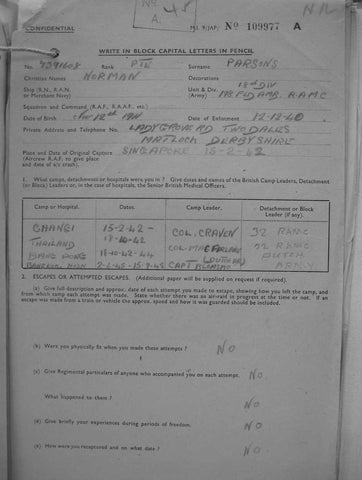 CONFIDENTIAL
No
A.
M.I. 9/JAP/ No 109977 A
WRITE IN BLOCK CAPITAL LETTERS IN PENCIL
No. 7391608 Rank PTE Surname PARSONS
Christian Names NORMAN Decorations
Ship (R.N., R.A.N. or Merchant Navy) Unit & Div. (Army) 18th DIV FLD AMB. R.A.M.C
Squadron and Command (R.A.F., R.A.A.F., etc.)
Date of Birth 12th 1914 Date of Enlistment 12-12-40
Private Address and Telephone No. LADYGROVE RD TWO DALES
MATLOCK DERBYSHIRE
Place and Date of Original Capture SINGAPORE 15-2-42
(Aircrew R.A.F. to give place
and date of a/c crash).
1. What camps, detachments or hospitals were you in ? Give dates and names of the British Camp Leaders, Detachment
(or Block) Leaders or, in the case of hospitals, the Senior British Medical Officers.
Camp or Hospital. Dates. Camp Leader. Detachment or Block
Leader (if any).
CHANGI 15-2-42 - COL. CRAVEN 32 RAMC
THAILAND -10-42 COL. MACFARLANE 32 RAMC
18-10-42-44 DUTCH
2-6-45-15-9-45 CAPT ARMY
2. ESCAPES OR ATTEMPTED ESCAPES. (Additional paper will be supplied on request if required).
(a) Give full description and approx. date of each attempt you made to escape, showing how you left the camp, and
from which camp each attempt was made. State whether there was an air-raid in progress at the time or not. If an
escape was made from a train or vehicle the approx. speed and how it was guarded should be included.
(b) Were you physically fit when you made these attempts ? NO
(c) Give Regimental particulars of anyone who accompanied you on each attempt. NO
What happened to them ? NO
(d) Give briefly your experiences during periods of freedom. NO
(e) How were you recaptured and on what date ? NO